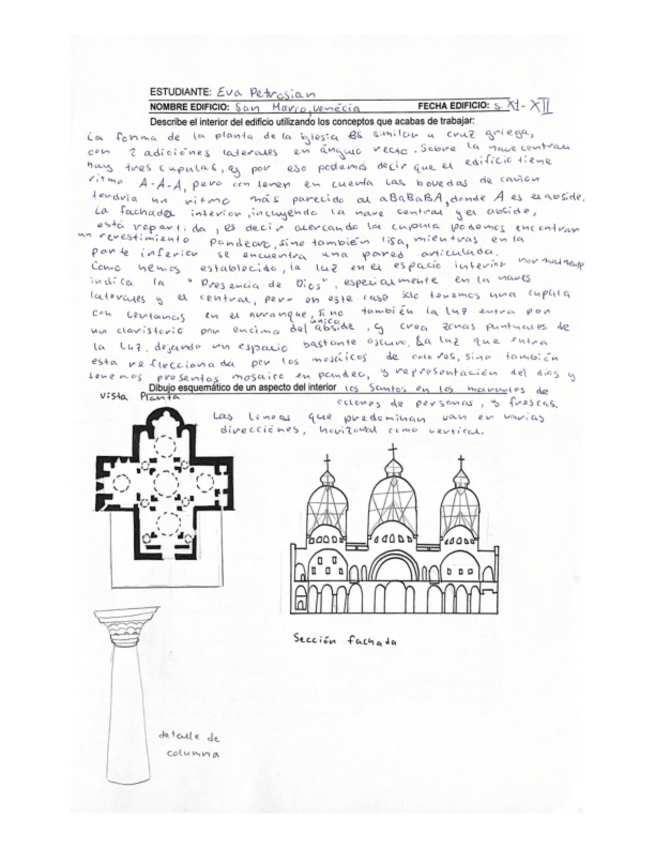 ESTUDIANTE: Eva Petrosian
NOMBRE EDIFICIO: San Marco, venécia FECHA EDIFICIO: s. XI - XII
Describe el interior del edificio utilizando los conceptos que acabas de trabajar:
La forma de la planta de la iglesia es similar a cruz griega,
con 2 adiciónes laterales en ángulo recto. Sobre la nave central
hay tres cupulas, y por eso podemos decir que el edificio tiene
ritmo A-A-A, pero con lever en cuenta las bovedas de cañon
tendria un ritmo más parecido al aBaBaBA, donde A es el abside.
La fachada interior, incluyendo la nave central y el abside,
está repartida, es decir acercando la cupula podemos encontrar
un revestimiento pandeaz, sino también lisa, mientras en la
parte inferior se encuentra una pared articulada.
Como hemos establocido, la luz en el espacio interior normalmente
indica la "Presencia de Dios", especialmente en la naves
laterales y el central, pero en este caso solo tenemos una cupula
con ventanas en el arranque, sino también la luz entra por
un único claristorio por encima del abside, y crea zonas puntuales de
la luz, dejando un espacio bastante oscuro. La luz que entra
esta refleccionada por los mosáicos de colores, sino también
tenemos presentos mosaico en pandeo, y representación del dios y
Dibujo esquemático de un aspecto del interior los Santos en los marmoles de
vista Planta
ciones de personas, y frescas.
Las lineas que predominan van en varias
direcciónes, horizotal como vertical.
Sección fachada
detalle de
columna